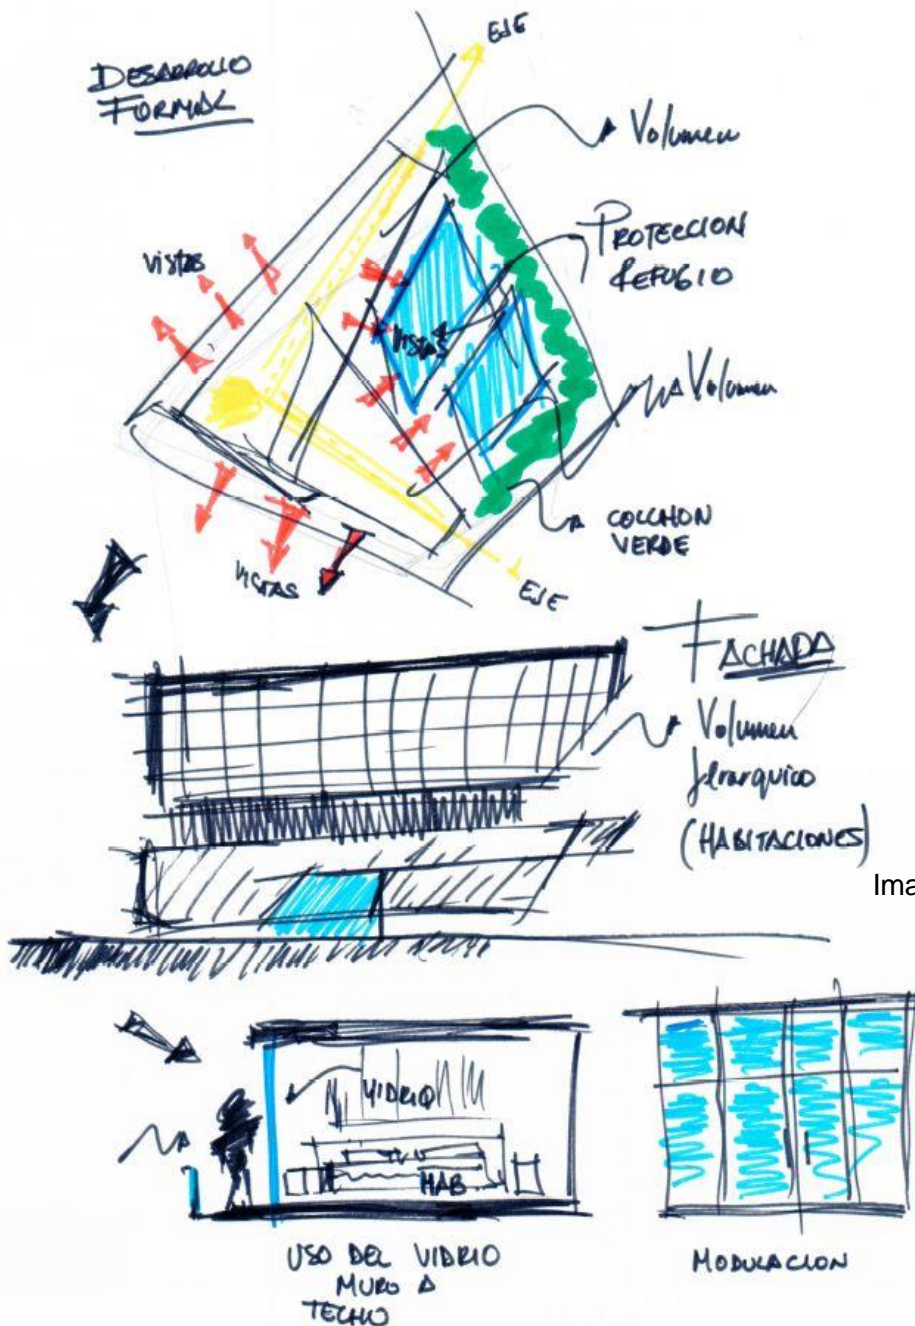 DESARROLLO
FORMAL
EJE
Volumen
PROTECCION
REFUGIO
VISTAS
VISTAS
Volumen
COLCHON
VERDE
VISTAS
EJE
FACHADA
Volumen
Jerarquico
(HABITACIONES)
Ima
VIDRIO
HAB
USO DEL VIDRIO
MURO A
TECHO
MODULACION